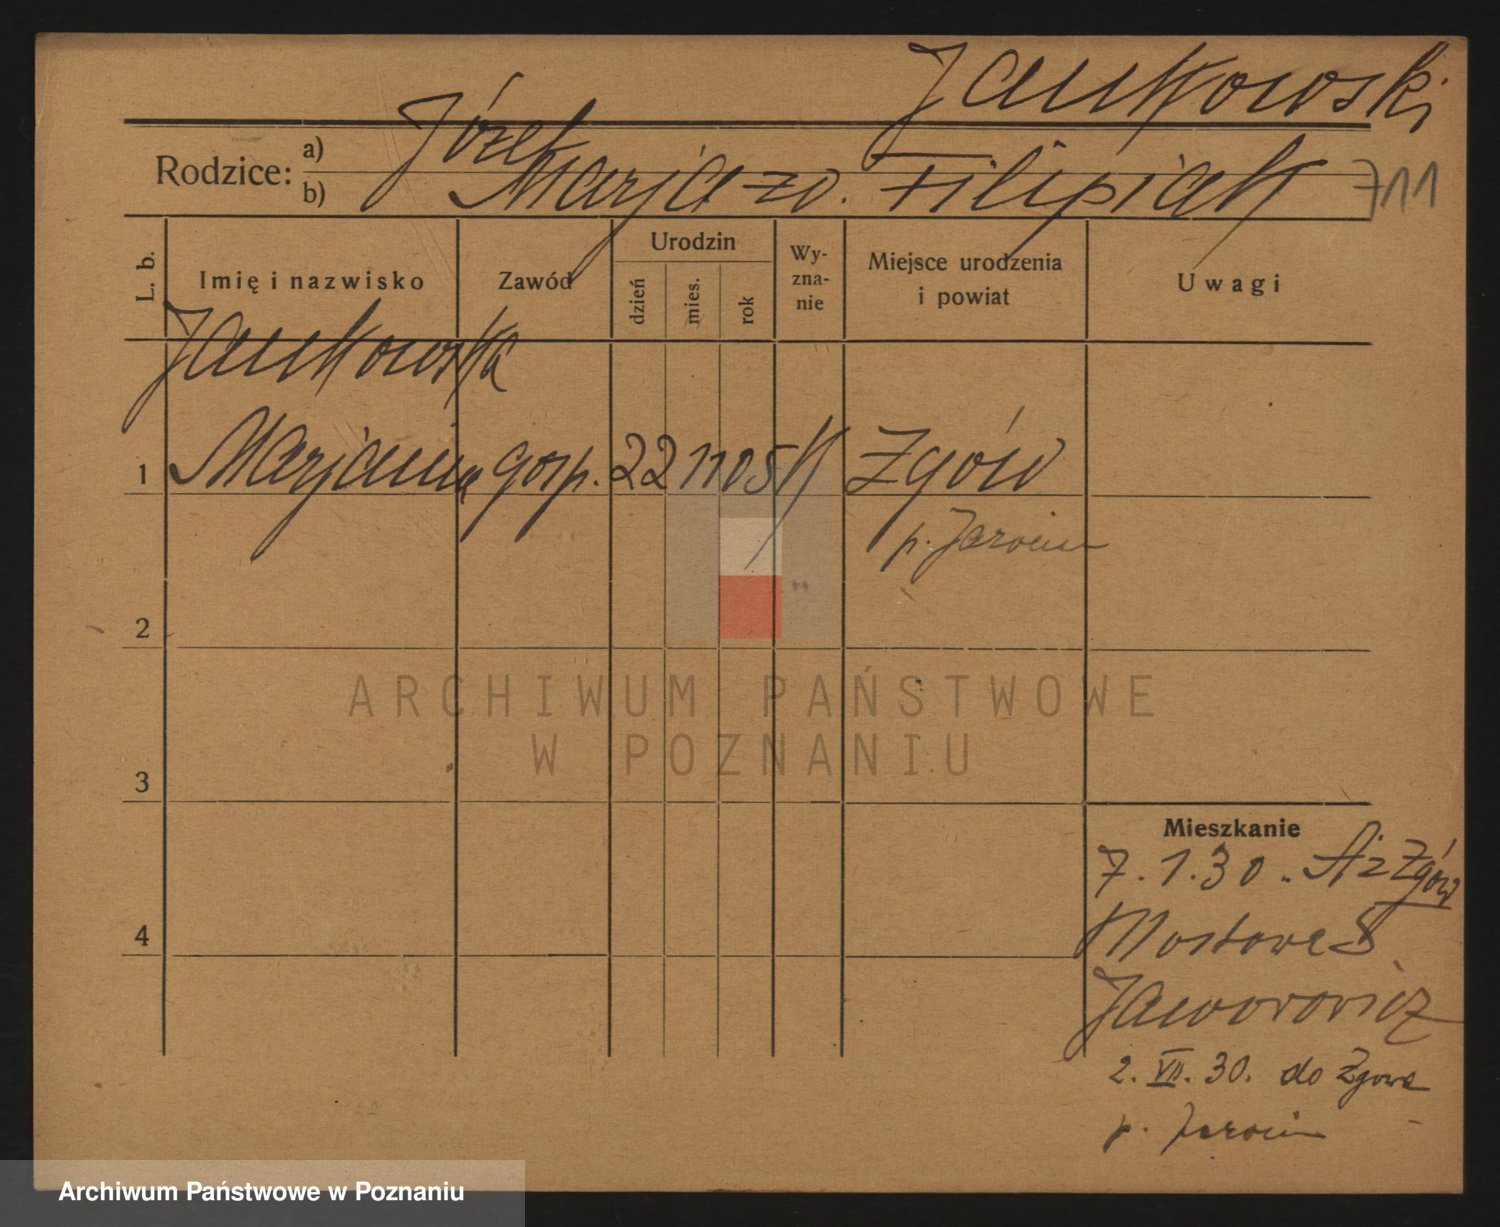 Jankowski
Rodzice: a) Józef
b) Marja zd. Filipiak 711
L. b. Imię i nazwisko Zawód Urodzin dzień mies. rok Wyznanie Miejsce urodzenia i powiat Uwagi
Jankowska
1 Marjanna gosp. 22 11 05 K Zgów
p. Jarocin
2
ARCHIWUM PAŃSTWOWE
W POZNANIU
3
Mieszkanie
7.1.30. Zgów
4 Mostowa
2. VII. 30. do Zgowa
p. Jarocin
Archiwum Państwowe w Poznaniu